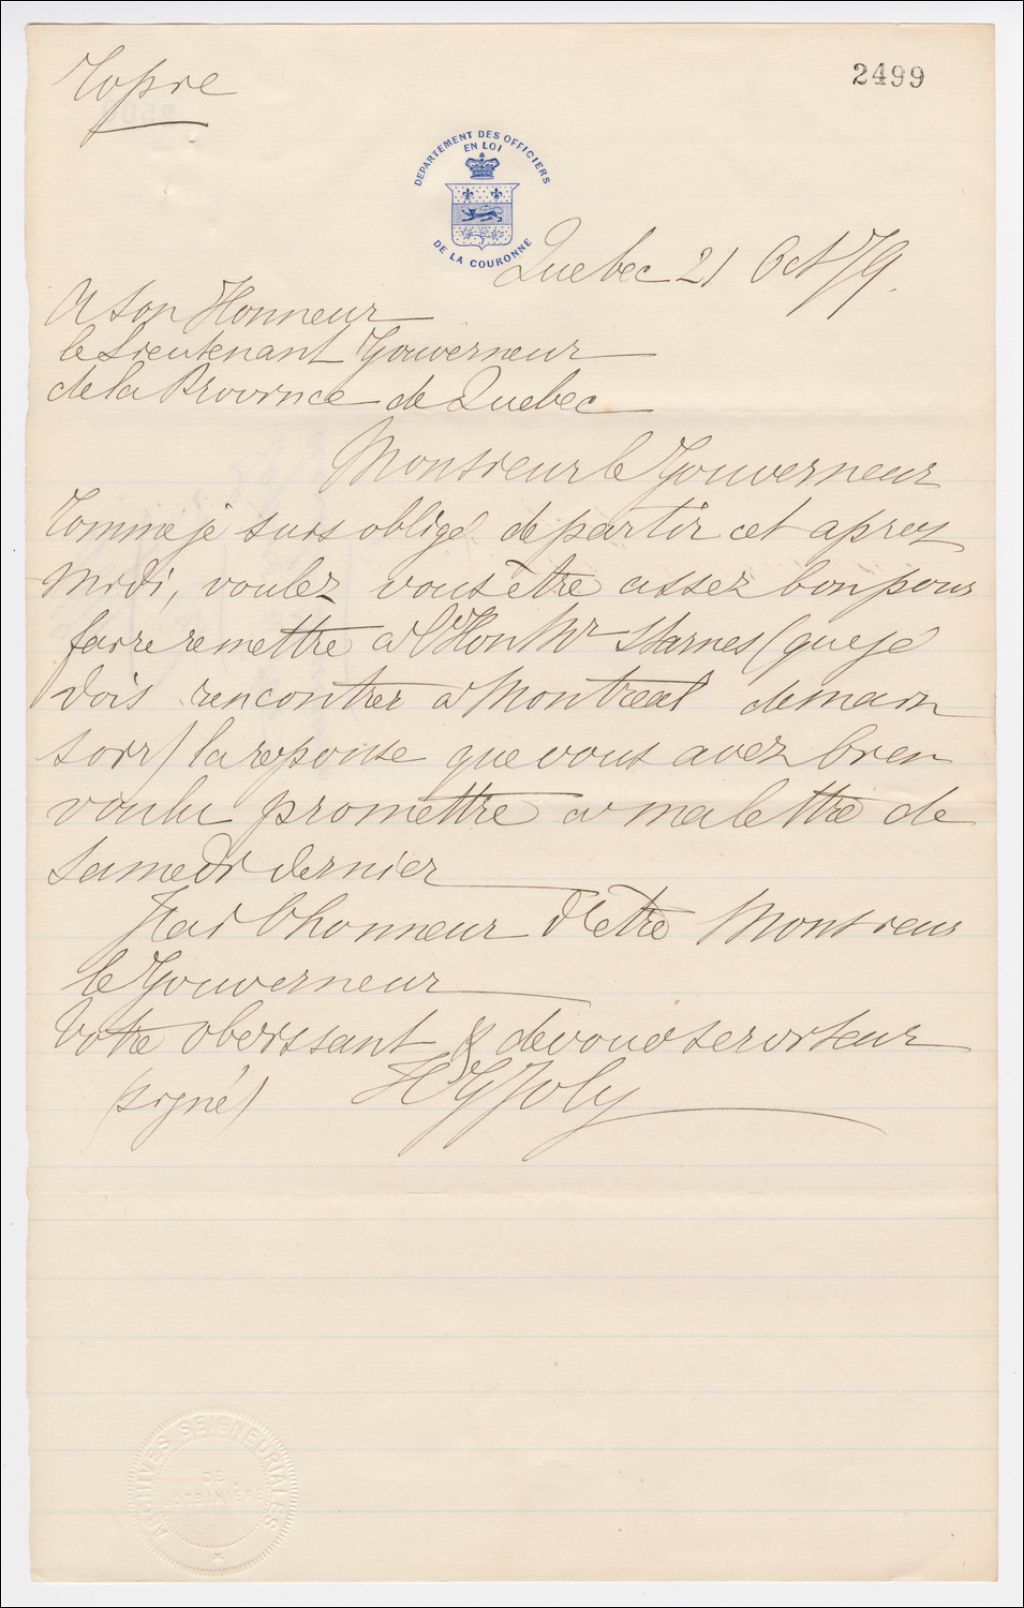 Copie
2499
DEPARTEMENT DES OFFICIERS
EN LOI
DE LA COURONNE
Quebec 21 Oct 79.
A Son Honneur
le Lieutenant Gouverneur
de la Province de Quebec
Monsieur le Gouverneur
Comme je suis obligé de partir cet aprez
midi, voulez vous être assez bon pour
faire remettre a l'Hon Mr Starnes (que je
dois rencontrer a Montreal demain
soir) la reponse que vous avez bien
voulu promettre a ma lettre de
Samedi dernier
J'ai l'honneur d'etre Monsieur
le Gouverneur
Votre obeissant & devoué serviteur
(signé) H G Joly
ARCHIVES SEIGNEURIALES
DE
LOTBINIÈRE